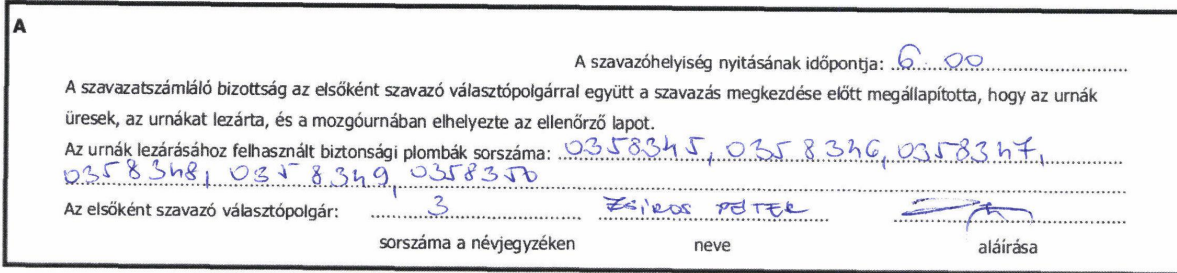 A
A szavazóhelyiség nyitásának időpontja: 6 00
A szavazatszámláló bizottság az elsőként szavazó választópolgárral együtt a szavazás megkezdése előtt megállapította, hogy az urnák
üresek, az urnákat lezárta, és a mozgóurnában elhelyezte az ellenőrző lapot.
Az urnák lezárásához felhasznált biztonsági plombák sorszáma: 0358345, 0358346, 0358347,
0358348, 0358349, 0358350
Az elsőként szavazó választópolgár: 3 ZSÍROS PÉTER
sorszáma a névjegyzéken neve aláírása